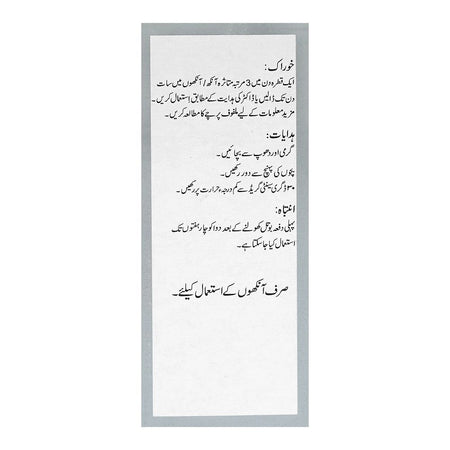 خوراک:
ایک قطرہ دن میں 3 مرتبہ متاثرہ آنکھ / آنکھوں میں سات
دن تک ڈالیں یا ڈاکٹر کی ہدایت کے مطابق استعمال کریں۔
مزید معلومات کے لیے ملفوف پرچے کا مطالعہ کریں۔
ہدایات:
گرمی اور دھوپ سے بچائیں۔
بچوں کی پہنچ سے دور رکھیں۔
۳۰ ڈگری سینٹی گریڈ سے کم درجہ حرارت پر رکھیں۔
انتباہ:
پہلی دفعہ بوتل کھولنے کے بعد دوا کو چار ہفتوں تک
استعمال کیا جا سکتا ہے۔
صرف آنکھوں کے استعمال کیلئے۔